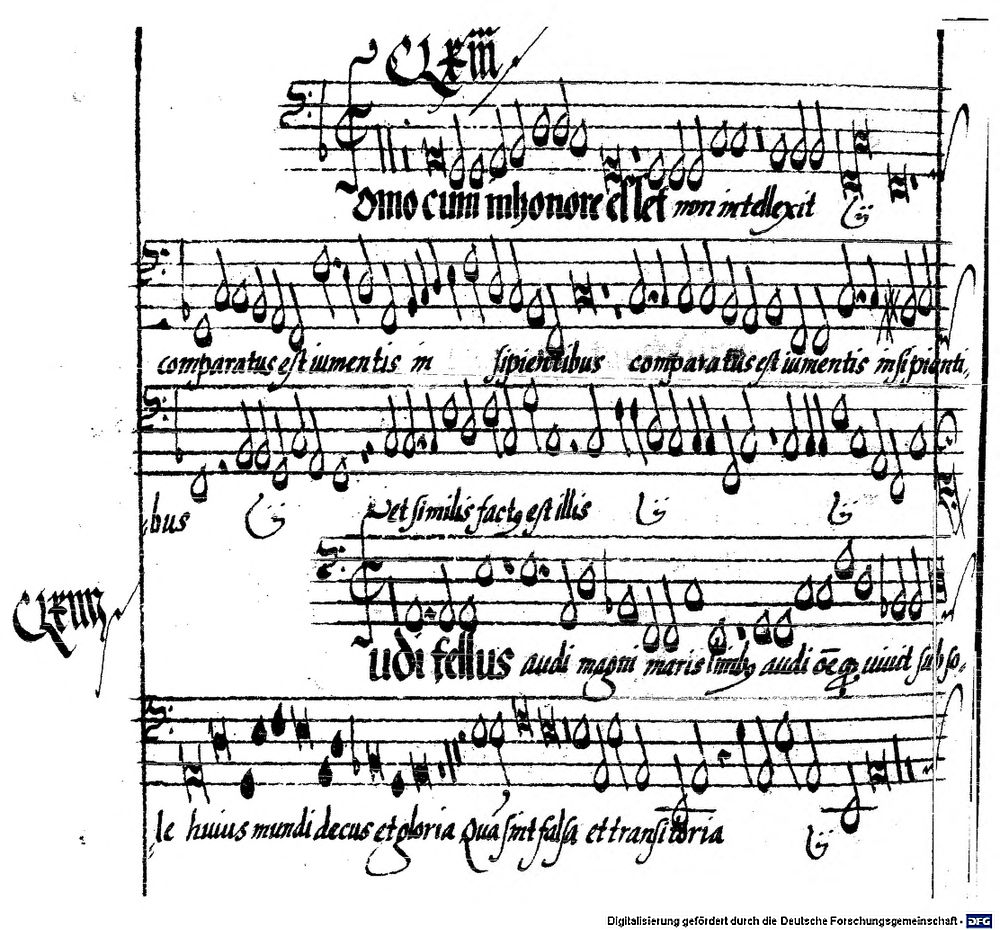 CLXIII
Homo cum inhonore esset non intellexit ij
comparatus est iumentis in sipientibus comparatus est iumentis insipienti,
bus ij et similis factꝰ est illis ij ij
CLXIIII
Audi tellus audi magni maris limbꝰ audi oē qꝫ uiuit sub so,
le huius mundi decus et gloria Qua sint falsa et transitoria ij
Digitalisierung gefördert durch die Deutsche Forschungsgemeinschaft - DFG